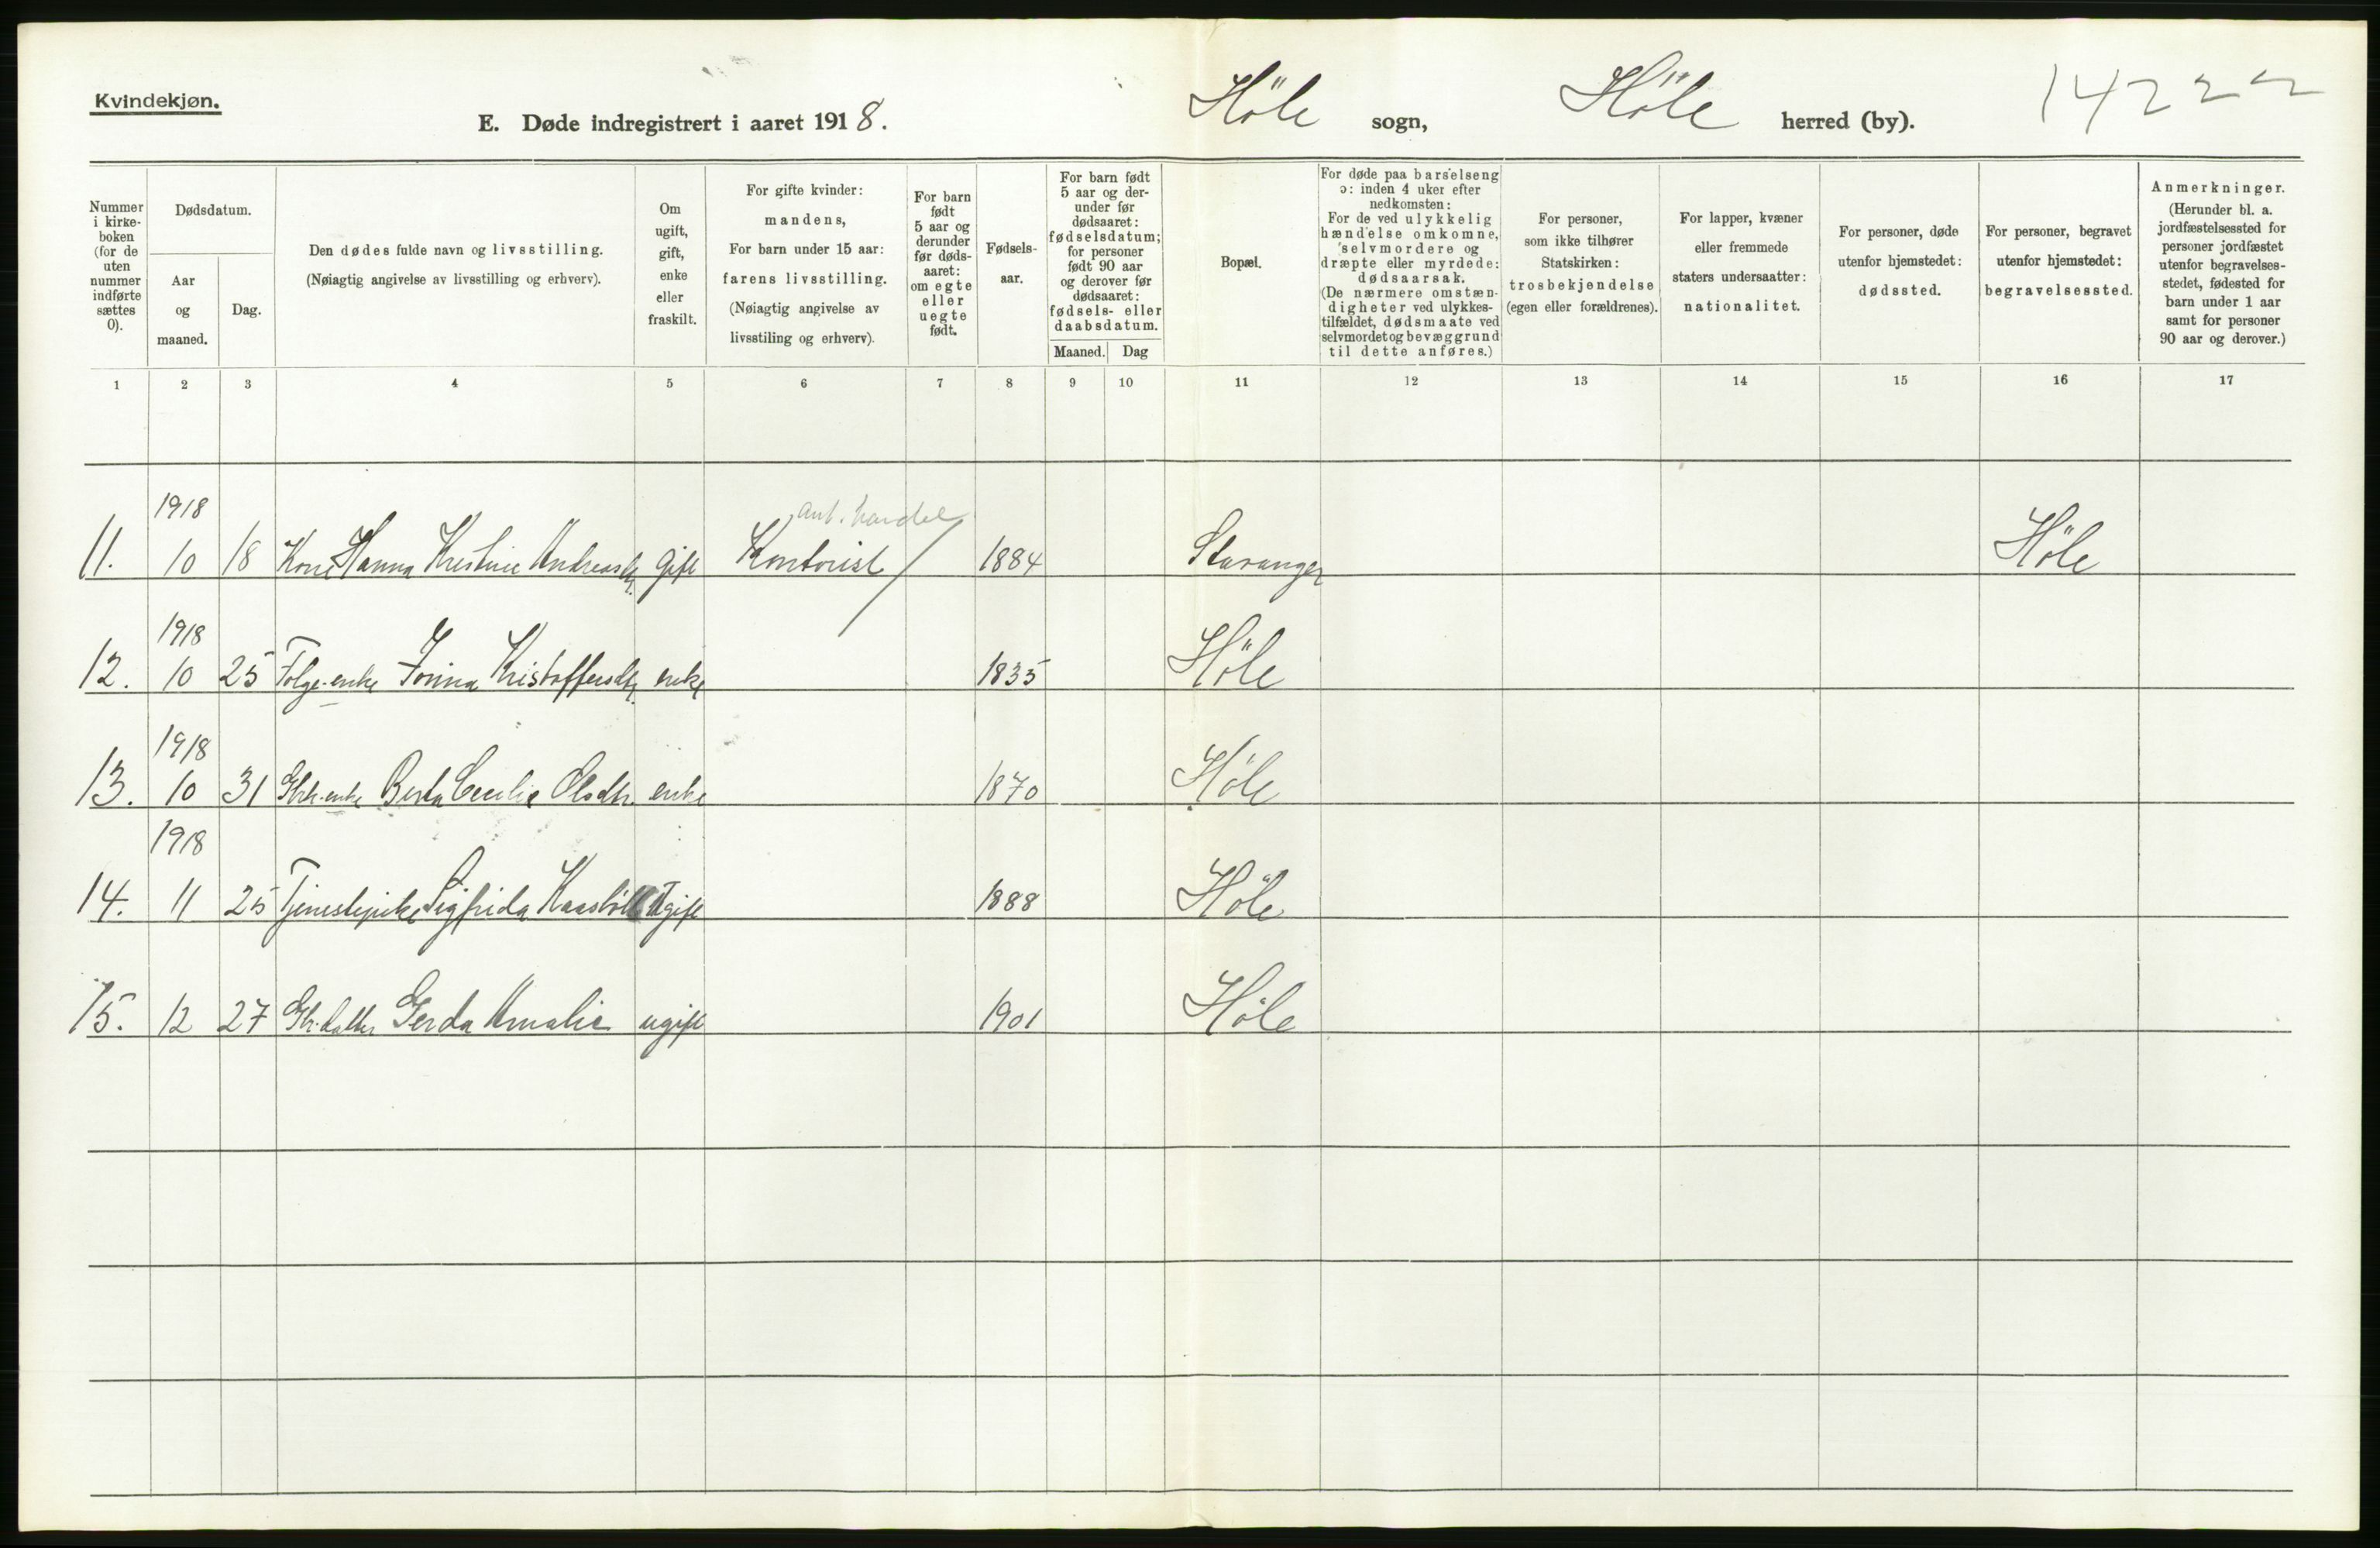 Kvindekjøn.
E. Døde indregistrert i aaret 1918.
Höle sogn, Höle herred (by).
14222
Nummer i kirke-boken (for de uten nummer indførte sættes 0).
Dødsdatum.
Aar og maaned.
Dag.
Den dødes fulde navn og livsstilling.
(Nøiagtig angivelse av livsstilling og erhverv).
Om ugift, gift, enke eller fraskilt.
For gifte kvinder: mandens,
For barn under 15 aar: farens livsstilling.
(Nøiagtig angivelse av livsstiling og erhverv).
For barn født 5 aar og derunder før døds-aaret: om egte eller uegte født.
Fødsels-aar.
For barn født 5 aar og der-under før dødsaaret: fødselsdatum; for personer født 90 aar og derover før dødsaaret: fødsels- eller daabsdatum.
Maaned. Dag
Bopæl.
For døde paa barselseng ɔ: inden 4 uker efter nedkomsten:
For de ved ulykkelig hændelse omkomne, selvmordere og dræpte eller myrdede: dødsaarsak.
(De nærmere omstæn-digheter ved ulykkes-tilfældet, dødsmaate ved selvmordet og bevæggrund til dette anføres.)
For personer, som ikke tilhører Statskirken: trosbekjendelse (egen eller forældrenes).
For lapper, kvæner eller fremmede staters undersaatter: nationalitet.
For personer, døde utenfor hjemstedet: dødssted.
For personer, begravet utenfor hjemstedet: begravelsessted.
Anmerkninger.
(Herunder bl. a. jordfæstelsessted for personer jordfæstet utenfor begravelses-stedet, fødested for barn under 1 aar samt for personer 90 aar og derover.)
1 2 3 4 5 6 7 8 9 10 11 12 13 14 15 16 17
1918 ant. handel
11. 10 18 Kone Hanna Kristine Andreasdtr. gift Kontorist 1884 Stavanger Höle
1918
12. 10 25 Folge-enke Jorina Kristoffersdtr. enke 1835 Höle
1918
13. 10 31 enke Berta Cecilie Olsdtr. enke 1870 Höle
1918
14. 11 25 Tjenestepike Sigfrida Ugift 1888 Höle
15. 12 27 Gbr.datter Gerda Amalie ugift 1901 Höle